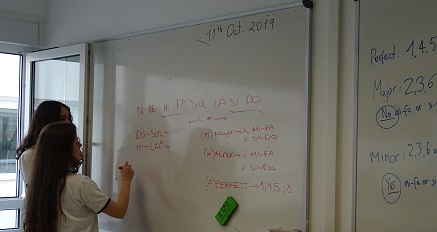 11th Oct. 2019
DO RE MI FA SOL LA SI DO
DO-SOL=
MI-LA=
(M)MAYOR → X MI-FA
X SI-DO
(m)Minor → √ MI-FA
√ SI-DO
(P)PERFECT → 1,4,5,8
Perfect: 1,4,5
Major: 2,3,6
No mi-fa or
Minor: 2,3,6
Yes mi-fa or